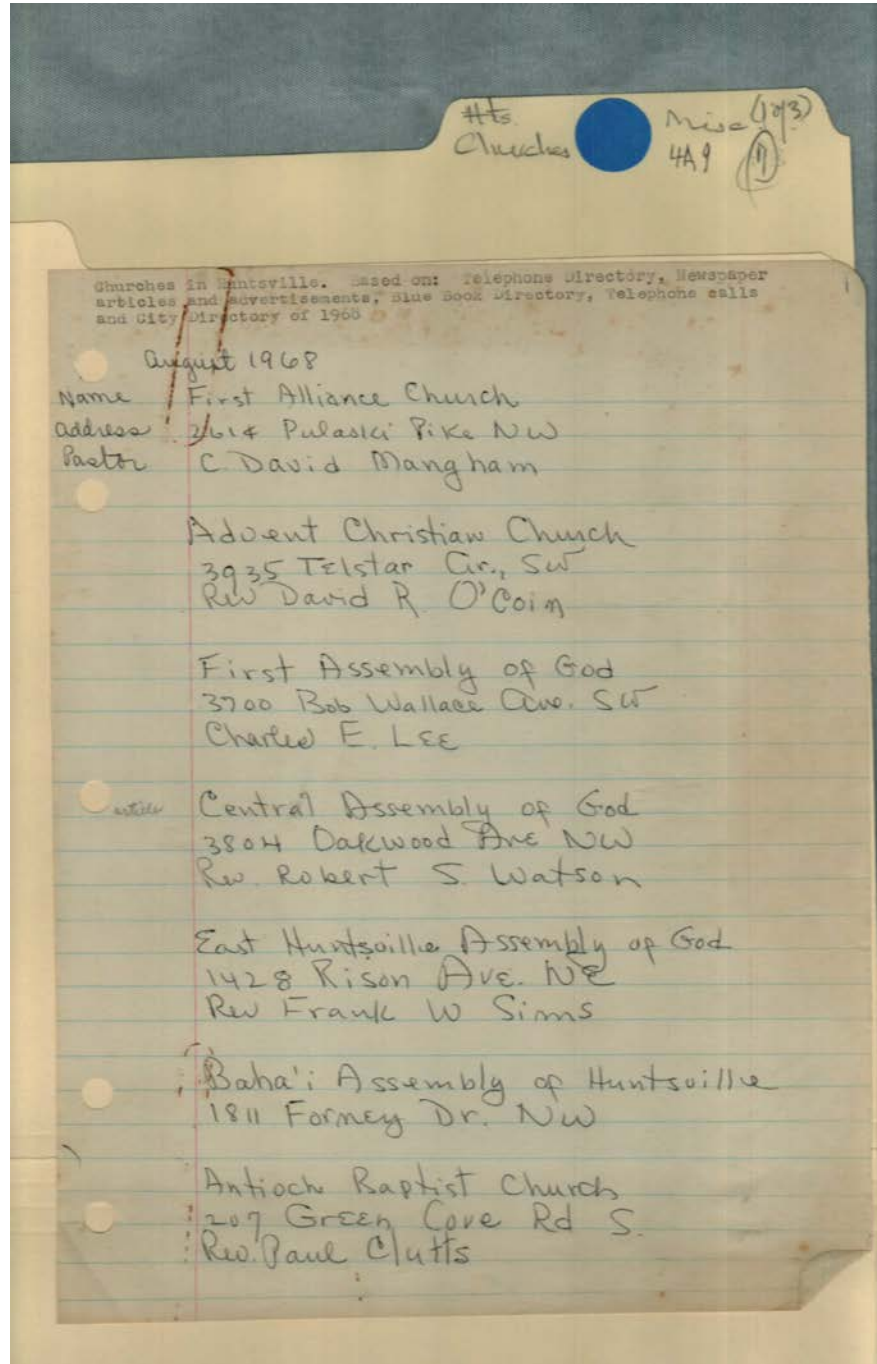 Hts. Churches
Misc (1 of 3)
4A9 (7)
1
Churches in Huntsville. Based on: Telephone Directory, Newspaper
articles and advertisements, Blue Book Directory, Telephone calls
and City Directory of 1968
August 1968
Name First Alliance Church
address 2614 Pulaski Pike NW
Pastor C. David Mangham
Advent Christian Church
3935 Telstar Cir., SW
Rev David R. O'Coin
First Assembly of God
3700 Bob Wallace Ave. SW
Charles E. Lee
article Central Assembly of God
3804 Oakwood Ave NW
Rev. Robert S. Watson
East Huntsville Assembly of God
1428 Rison Ave. NE
Rev Frank W Sims
Baha'i Assembly of Huntsville
1811 Forney Dr. NW
Antioch Baptist Church
207 Green Cove Rd S.
Rev. Paul Clutts